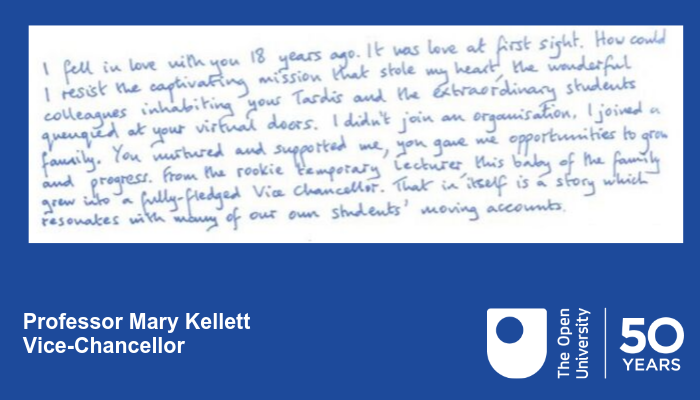 I fell in love with you 18 years ago. It was love at first sight. How could
I resist the captivating mission that stole my heart, the wonderful
colleagues inhabiting your Tardis and the extraordinary students
queuqued at your virtual doors. I didn't join an organisation, I joined a
family. You nurtured and supported me, you gave me opportunities to grow
and progress. From the rookie temporary Lecturer, this baby of the family
grew into a fully-fledged Vice Chancellor. That in itself is a story which
resonates with many of our own students' moving accounts.
Professor Mary Kellett
Vice-Chancellor
The Open
University
50
YEARS